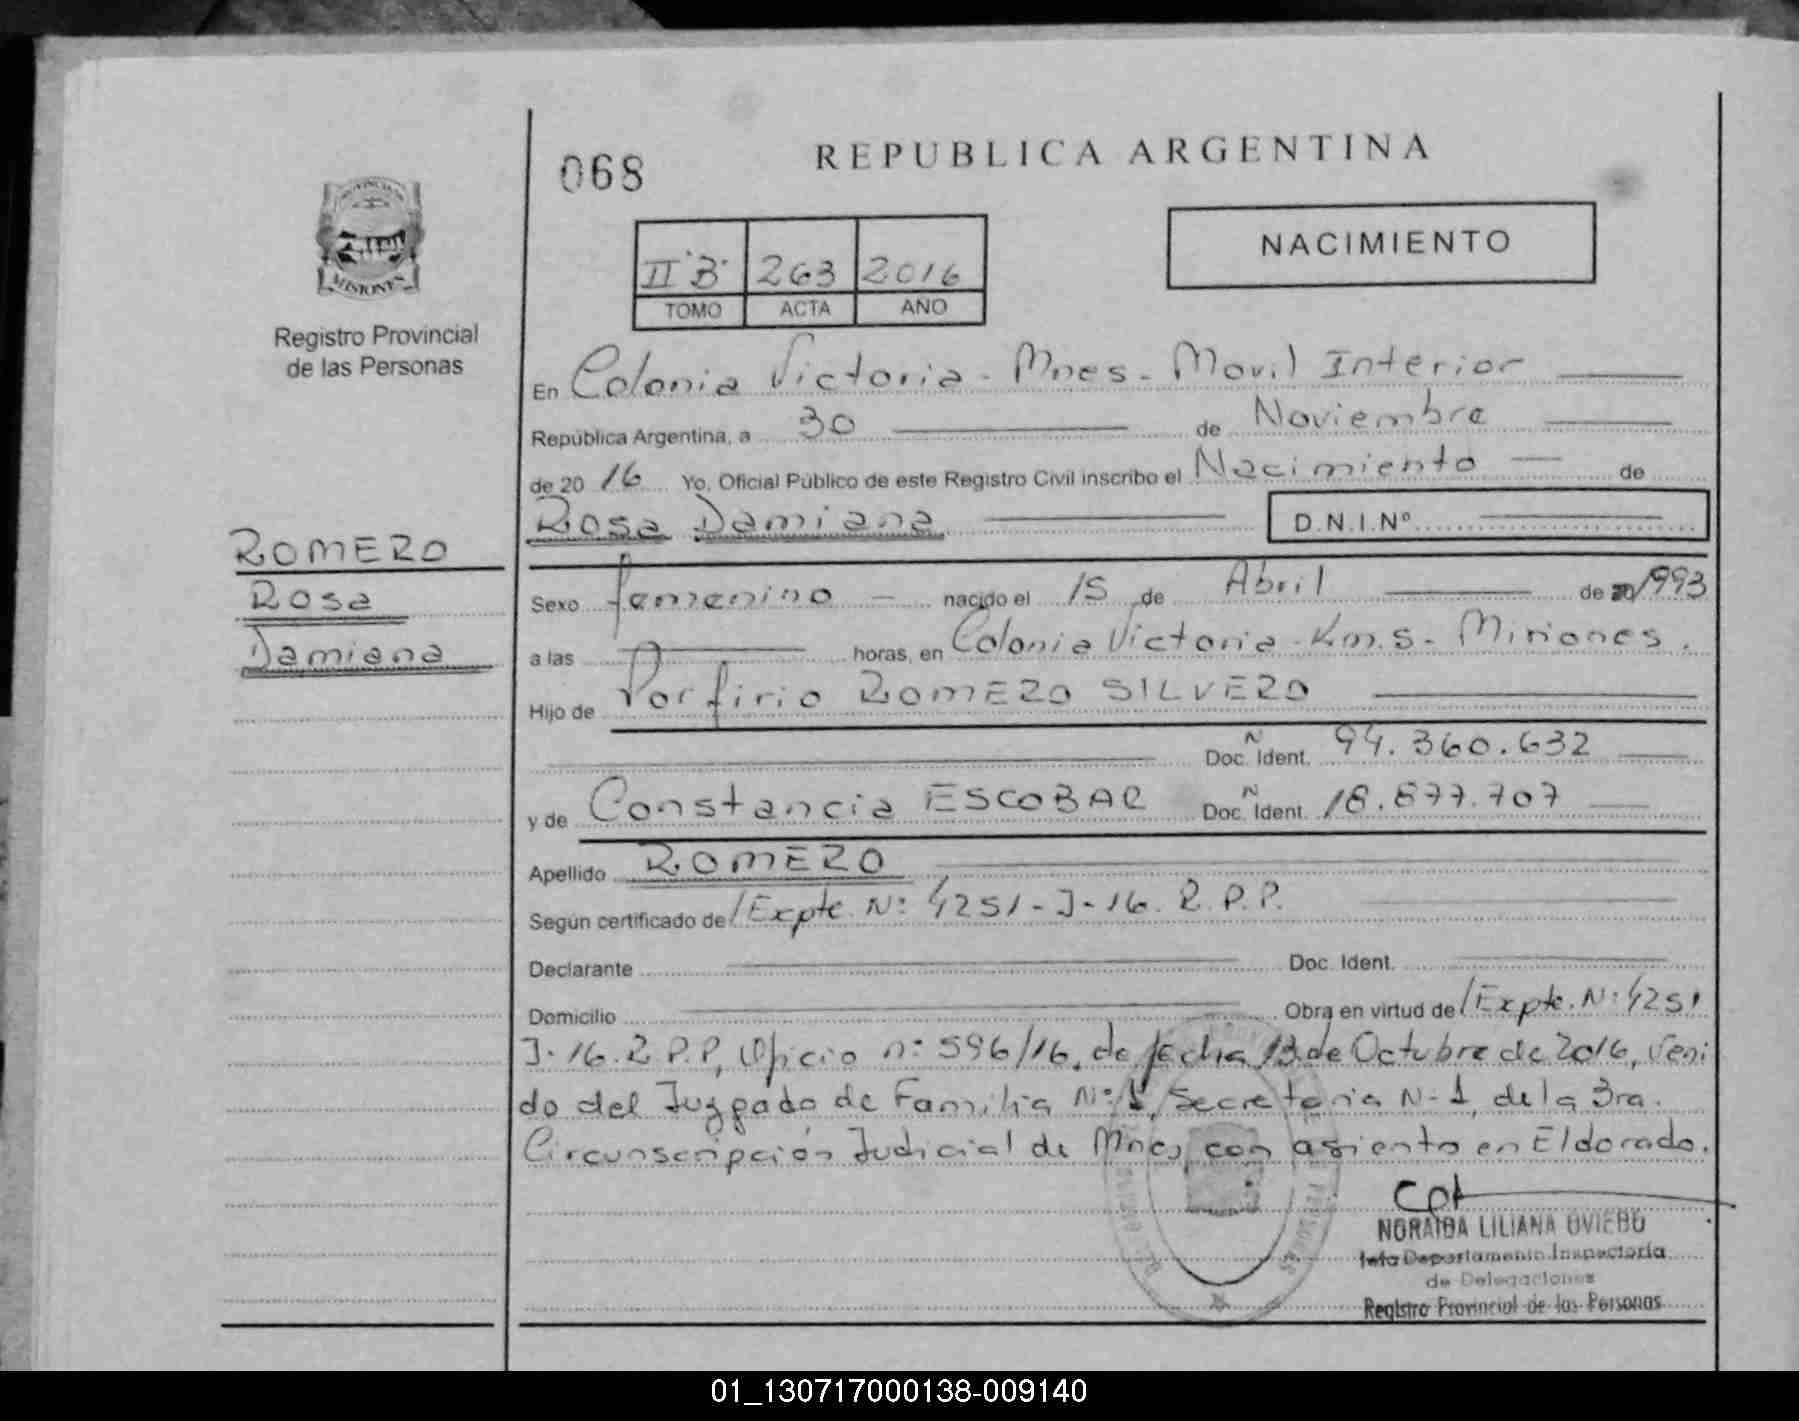 068
REPUBLICA ARGENTINA
NACIMIENTO
II "B" 263 2016
TOMO ACTA AÑO
MISIONES
Registro Provincial
de las Personas
En Colonia Victoria - Mnes - Movil Interior
República Argentina, a 30 de Noviembre
de 2016 Yo, Oficial Público de este Registro Civil inscribo el Nacimiento de
Rosa Damiana D.N.I.Nº
ROMERO
Rosa
Damiana
Sexo femenino nacido el 15 de Abril de 1993
a las horas, en Colonia Victoria - Km. 5 - Misiones.
Hijo de Porfirio ROMERO SILVERO
N Doc. Ident. 94.360.632
y de Constancia ESCOBAR N Doc. Ident. 18.877.707
Apellido ROMERO
Según certificado de /Expte. Nº: 4251-J-16. R.P.P.
Declarante Doc. Ident.
Domicilio Obra en virtud de /Expte. Nº: 4251
J-16. R.P.P, Oficio nº: 596/16, de fecha 13 de Octubre de 2016, veni
do del Juzgado de Familia Nº: 1, Secretaria Nº 1, de la 3ra.
Circunscripción Judicial de Mnes, con asiento en Eldorado.
NORAIDA LILIANA OVIEDO
Jefa Departamento Inspectoría
de Delegaciones
Registro Provincial de las Personas
01_130717000138-009140